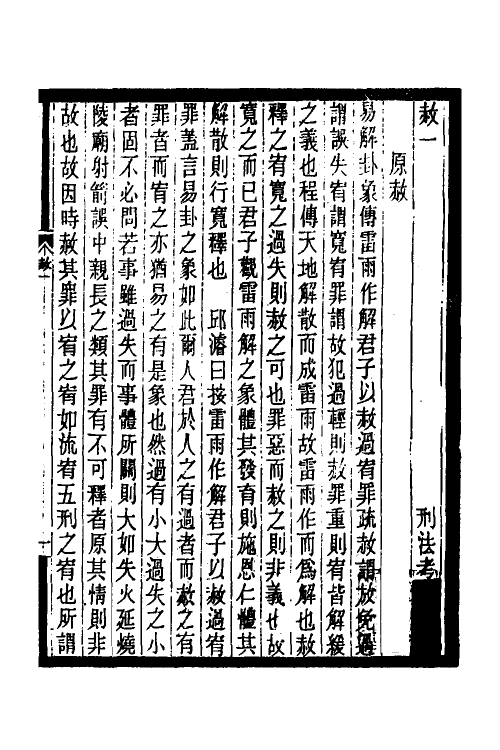 赦一
刑法考
原赦
易解卦象傳雷雨作解君子以赦過宥罪疏赦謂放免過
謂誤失宥謂寬宥罪謂故犯過輕則赦罪重則宥皆解緩
之義也程傳天地解散而成雷雨故雷雨作而爲解也赦
釋之宥寬之過失則赦之可也罪惡而赦之則非義也故
寬之而已君子觀雷雨解之象體其發育則施恩仁體其
解散則行寬釋也　邱濬曰按雷雨作解君子以赦過宥
罪蓋言易卦之象如此爾人君於人之有過者而赦之有
罪者而宥之亦猶易之有是象也然過有小大過失之小
者固不必問若事雖過失而事體所關則大如失火延燒
陵廟射箭誤中親長之類其罪有不可釋者原其情則非
故也故因時赦其罪以宥之宥如流宥五刑之宥也所謂
赦一